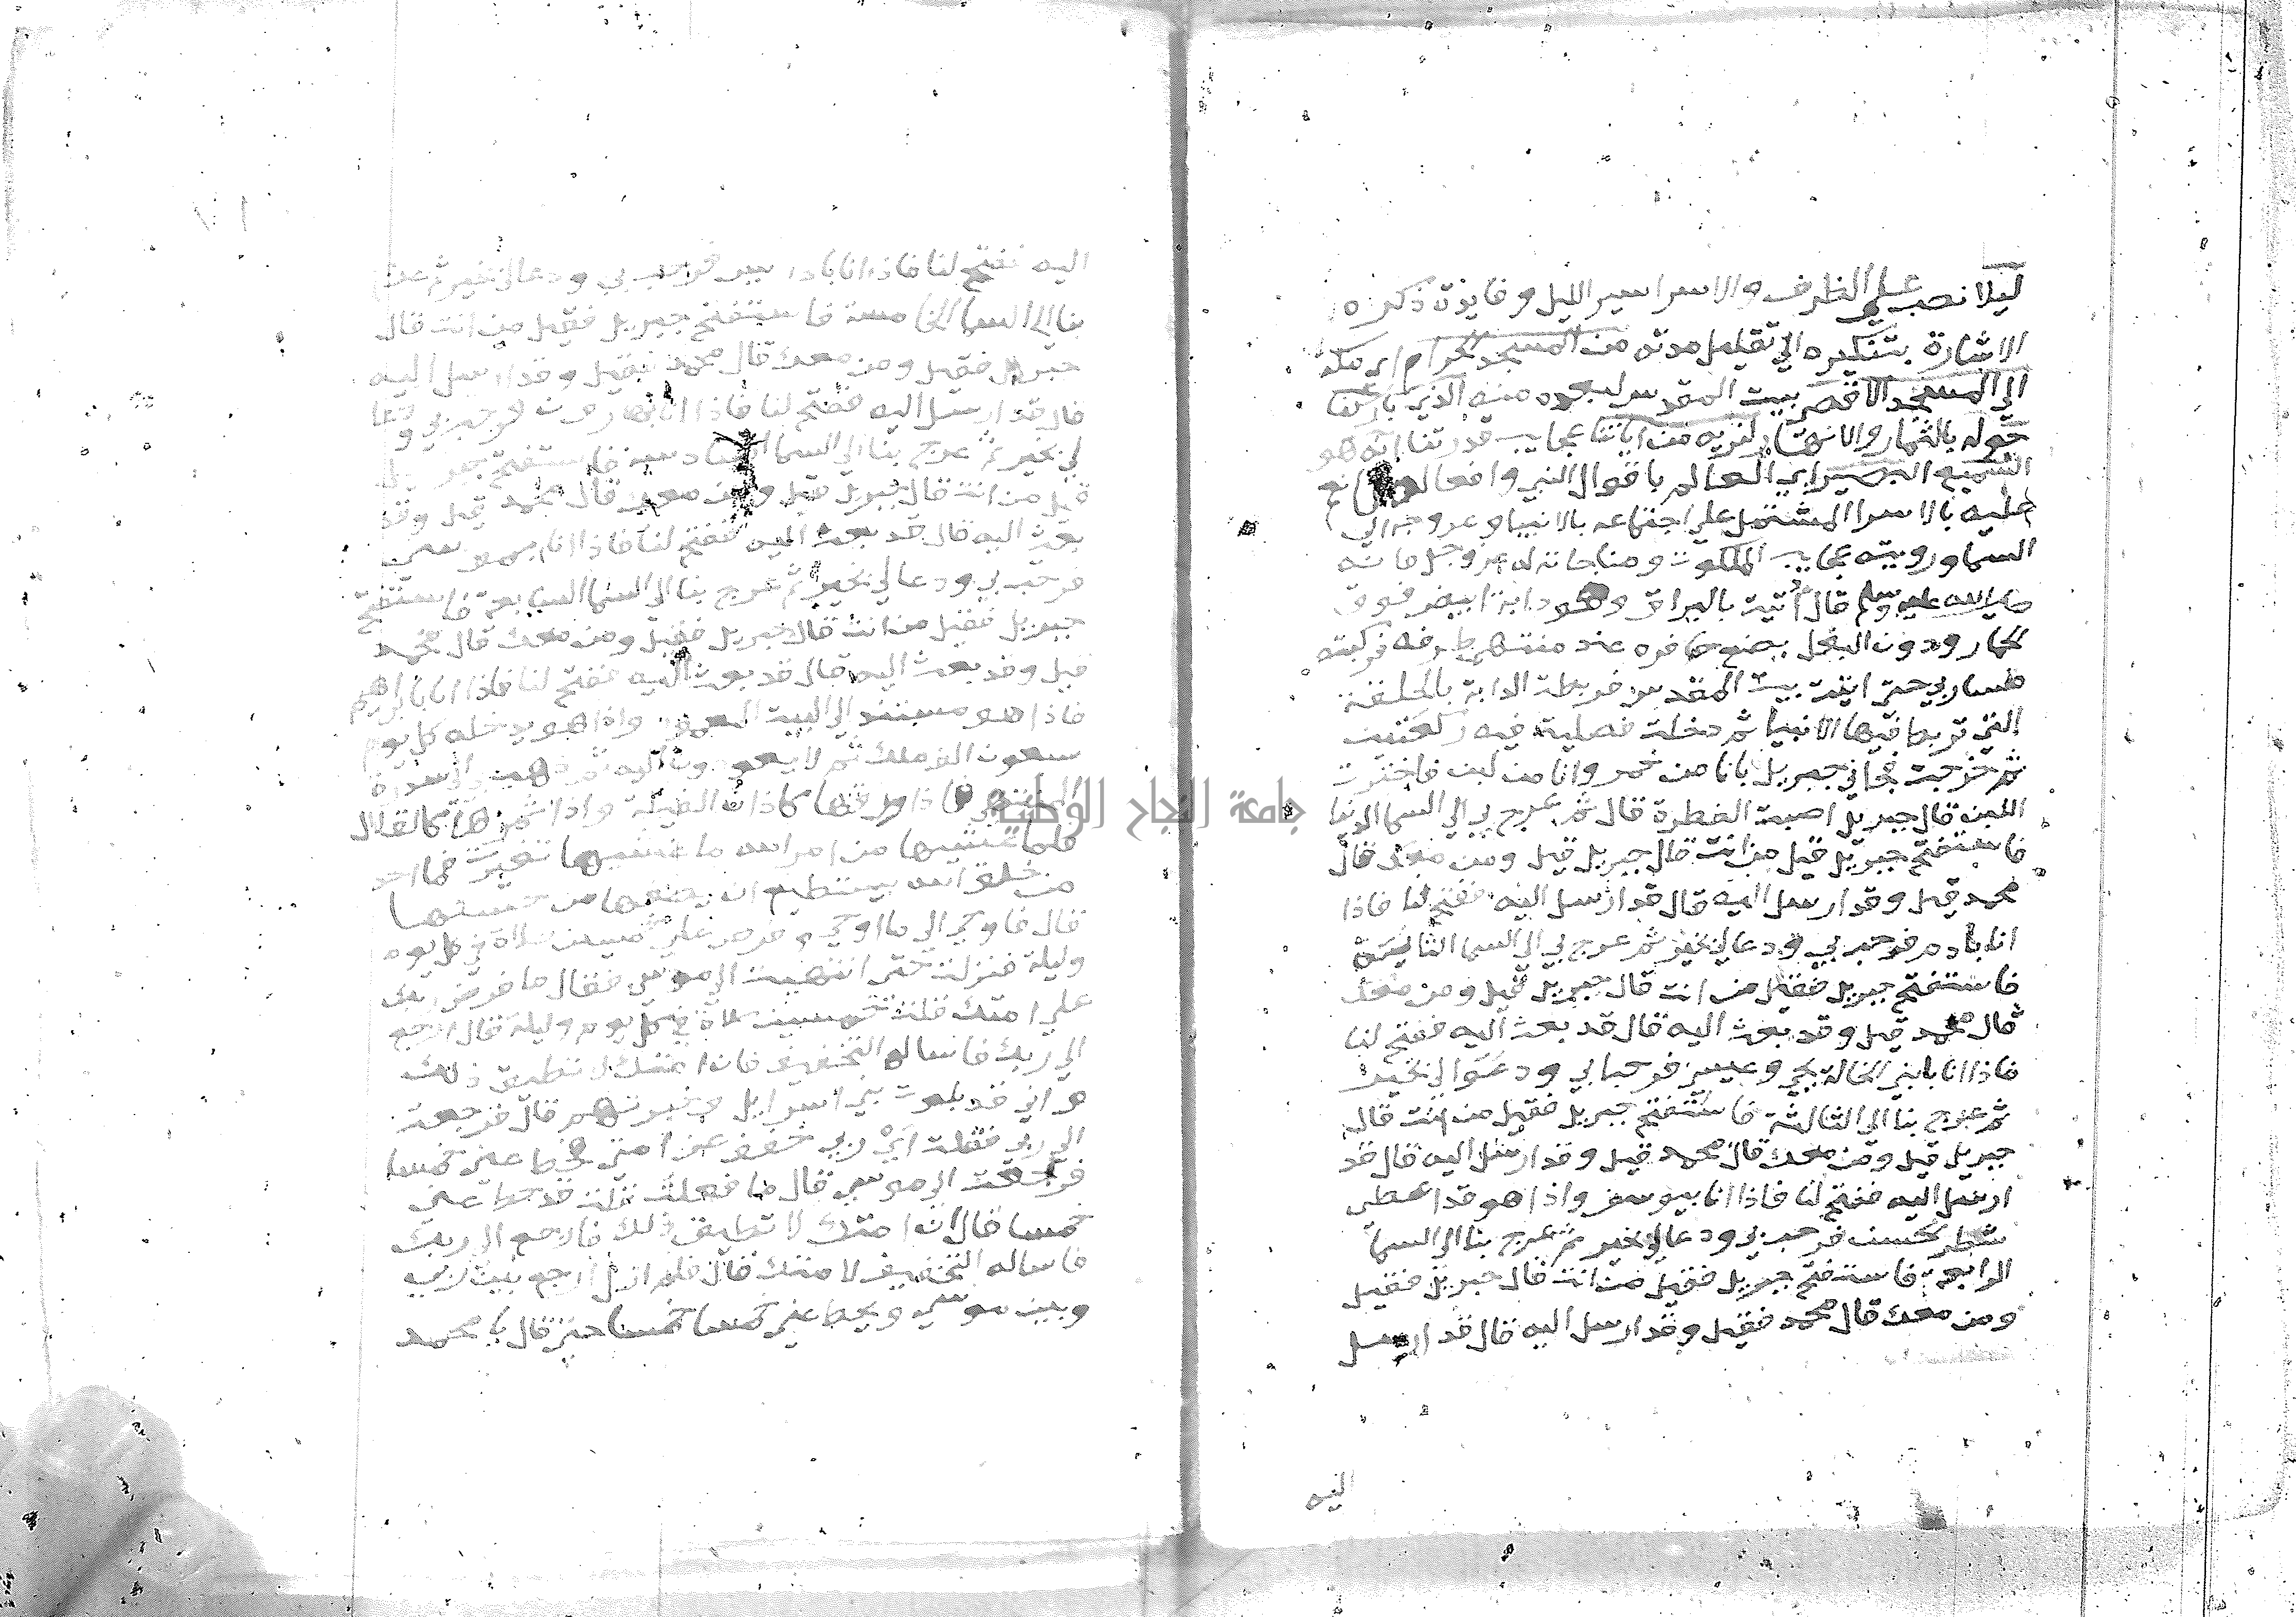 ليلا نصب علي الظرف والاسرا سير الليل وفايدة ذكره
الاشارة بتنكيره الي تقليل مدته من المسجد الحرام اي مكة
الي المسجد الاقصي بيت المقدس لبعده منه الذي باركنا
حوله بالثمار والانهار لنريه من اياتنا عجايب قدرتنا انه هو
السميع البصير اي العالم باقوال النبي وافعاله
عليه بالاسرا المشتمل علي اجتماعه بالانبيا وعروجه الي
السما ورويته عجايب الملكوت ومناجاته له عز وجل فانه
صلي الله عليه وسلم قال اتيت بالبراق وهو دابة ابيض فوق
الحمار ودون البغل يضع حافره عند منتهي طرفه فركبته
فسار بي حتي اتيت بيت المقدس فربطت الدابة بالحلقة
التي تربط فيها الانبيا ثم دخلت فصليت فيه ركعتين
ثم خرجت فجاني جبريل بانا من خمر وانا من لبن فاخترت
اللبن قال جبريل اصبت الفطرة قال ثم عرج بي الي السما الدنيا
فاستفتح جبريل قيل من انت قال جبريل قيل ومن معك قال
محمد قيل وقد ارسل اليه قال قد ارسل اليه ففتح لنا فاذا
انا بادم فرحب بي ودعا لي بخير ثم عرج بي الي السما الثانية
فاستفتح جبريل فقيل من انت قال جبريل قيل ومن معك
قال محمد قيل وقد بعث اليه قال قد بعث اليه ففتح لنا
فاذا انا بابني الخالة يحيي وعيسي فرحبا بي ودعوا لي بخير
ثم عرج بنا الي الثالثة فاستفتح جبريل فقيل من انت قال
جبريل قيل ومن معك قال محمد قيل وقد ارسل اليه قال قد
ارسل اليه ففتح لنا فاذا انا بيوسف واذا هو قد اعطي
شطر الحسن فرحب بي ودعا لي بخير ثم عرج بنا الي السما
الرابعة فاستفتح جبريل فقيل من انت قال جبريل فقيل
ومن معك قال محمد فقيل وقد ارسل اليه قال قد ارسل
اليه
اليه ففتح لنا فاذا انا بادريس فرحب بي ودعا لي بخير ثم عرج
بنا الي السما الخامسة فاستفتح جبريل فقيل من انت قال
جبريل فقيل ومن معك قال محمد فقيل وقد ارسل اليه
قال قد ارسل اليه ففتح لنا فاذا انا بهارون فرحب بي ودعا
لي بخير ثم عرج بنا الي السما السادسة فاستفتح جبريل
قيل من انت قال جبريل قيل ومن معك قال محمد قيل وقد
بعث اليه قال قد بعث اليه ففتح لنا فاذا انا بموسي
فرحب بي ودعا لي بخير ثم عرج بنا الي السما السابعة فاستفتح
جبريل فقيل من انت قال جبريل فقيل ومن معك قال محمد
قيل وقد بعث اليه قال قد بعث اليه ففتح لنا فاذا انا بابراهيم
فاذا هو مستند الي البيت المعمور واذا هو يدخله كل يوم
سبعون الف ملك ثم لا يعودون اليه ثم ذهب بي الي سدرة
المنتهي فاذا ورقها كاذان الفيلة واذا ثمرها كالقلال
فلما غشيها من امر الله ما غشيها تغيرت فما احد
من خلق الله يستطيع ان يصفها من حسنها
قال فاوحي الي ما اوحي وفرض علي خمسين صلاة في كل يوم
وليلة فنزلت حتي انتهيت الي موسي فقال ما فرض ربك
علي امتك قلت خمسين صلاة في كل يوم وليلة قال ارجع
الي ربك فاساله التخفيف فان امتك لا تطيق ذلك
واني قد بلوت بني اسرايل وخبرتهم قال فرجعت
الي ربي فقلت اي ربي خفف عن امتي فحط عني خمسا
فرجعت الي موسي قال ما فعلت قلت قد حط عني
خمسا قال ان امتك لا تطيق ذلك فارجع الي ربك
فاساله التخفيف لامتك قال فلم ازل ارجع بين ربي
وبين موسي ويحط عني خمسا خمسا حتي قال يا محمد
جامعة النجاح الوطنية